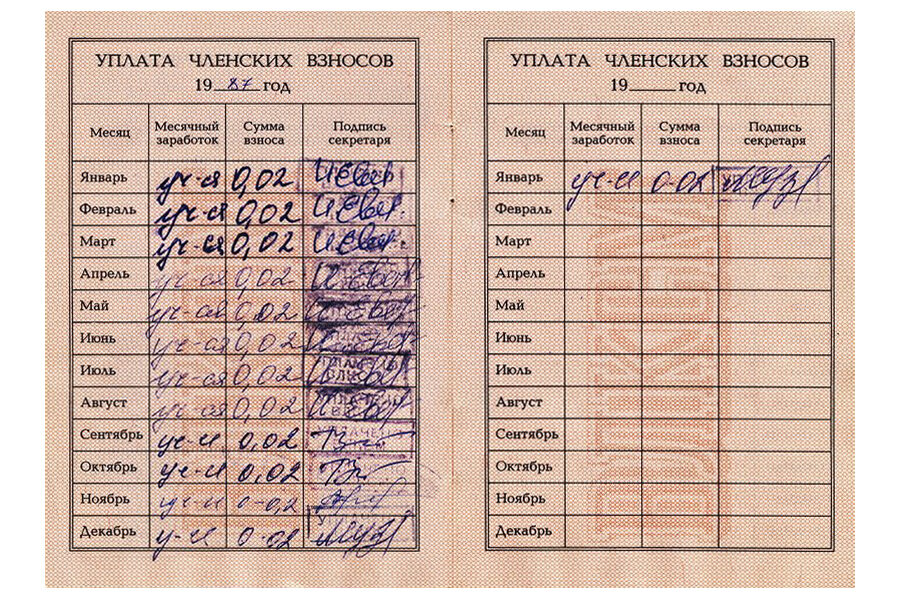 УПЛАТА ЧЛЕНСКИХ ВЗНОСОВ
19 87 год
Месяц Месячный заработок Сумма взноса Подпись секретаря
Январь уч-ся 0,02
Февраль уч-ся 0,02
Март уч-ся 0,02
Апрель уч-ся 0,02
Май уч-ся 0,02
Июнь уч-ся 0,02
Июль уч-ся 0,02
Август уч-ся 0,02
Сентябрь уч-и 0,02
Октябрь уч-и 0,02
Ноябрь уч-и 0-02
Декабрь у-и 0-02
УПЛАТА ЧЛЕНСКИХ ВЗНОСОВ
19 год
Месяц Месячный заработок Сумма взноса Подпись секретаря
Январь уч-и 0-02
Февраль
Март
Апрель
Май
Июнь
Июль
Август
Сентябрь
Октябрь
Ноябрь
Декабрь
ВЛКСМ